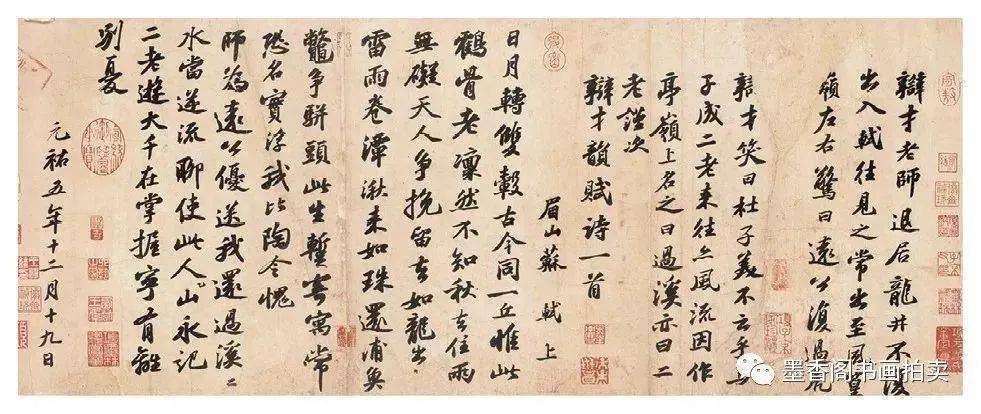 辯才老師退居龍井不復
出入軾往見之常出至風篁
嶺左右驚曰遠公復過虎
辯才笑曰杜子美不云乎與
子成二老來往亦風流因作
亭嶺上名之曰過溪亦曰二
老謹次
辯才韻賦詩一首
眉山蘇軾上
日月轉雙轂古今同一丘惟此
鶴骨老凜然不知秋去住兩
無礙天人爭挽留去如龍出
雷雨卷潭湫來如珠還浦魚
鼈爭駢頭此生暫寄寓常
恐名實浮我比陶令愧
師為遠公優送我還過溪〻
水當逆流聊使此人山永記
二老遊大千在掌握寧有離
別憂
元祐五年十二月十九日
墨香阁书画拍卖